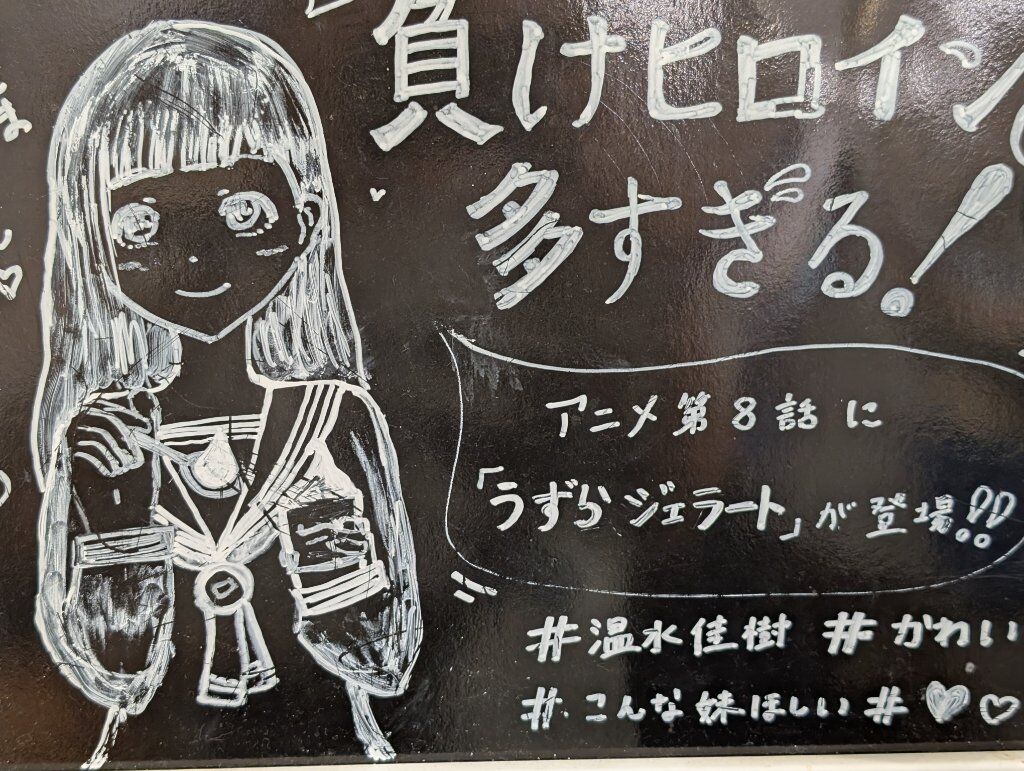 負けヒロインが
多すぎる!
アニメ第8話に
「うずらジェラート」が登場!!
#温水佳樹 #かわいい
#こんな妹ほしい #♥♡